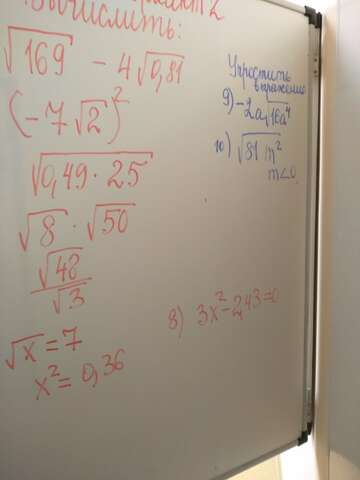 Вычислить:
√169 - 4√0,81
(-7√2)²
√0,49·25
√8 · √50
√48
√3
√x = 7
x² = 0,36
Упростить
выражение
9) -2a√16a⁴
10) √81 m²
m<0
8) 3x² - 2,43 = 0